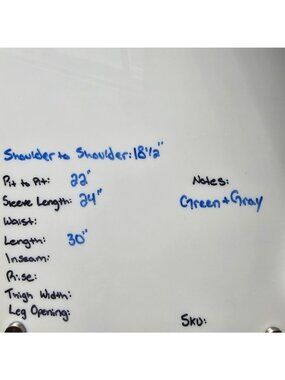 Shoulder to Shoulder: 18 1/2"
Pit to Pit: 22"
Sleeve Length: 24"
Waist:
Length: 30"
Inseam:
Rise:
Thigh Width:
Leg Opening:
Notes:
Green + Gray
SKU: